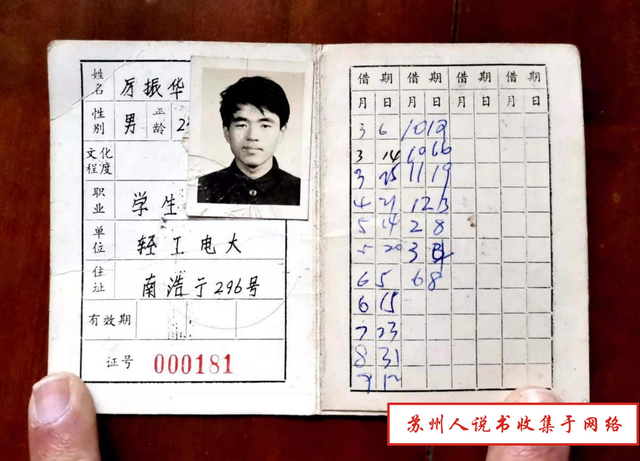 姓名 厉振华
性别 男 年龄 2
文化程度
职业 学生
单位 轻工电大
住址 南浩亍296号
有效期
证号 000181
借期 借期 借期 借期
月日 月日 月日 月日
3 6 10 12
3 14 10 16
3 25 11 19
4 21 12 13
5 14 2 8
5 20 3
6 5 6 8
6 15
7 23
8 31
苏州人说书收集于网络